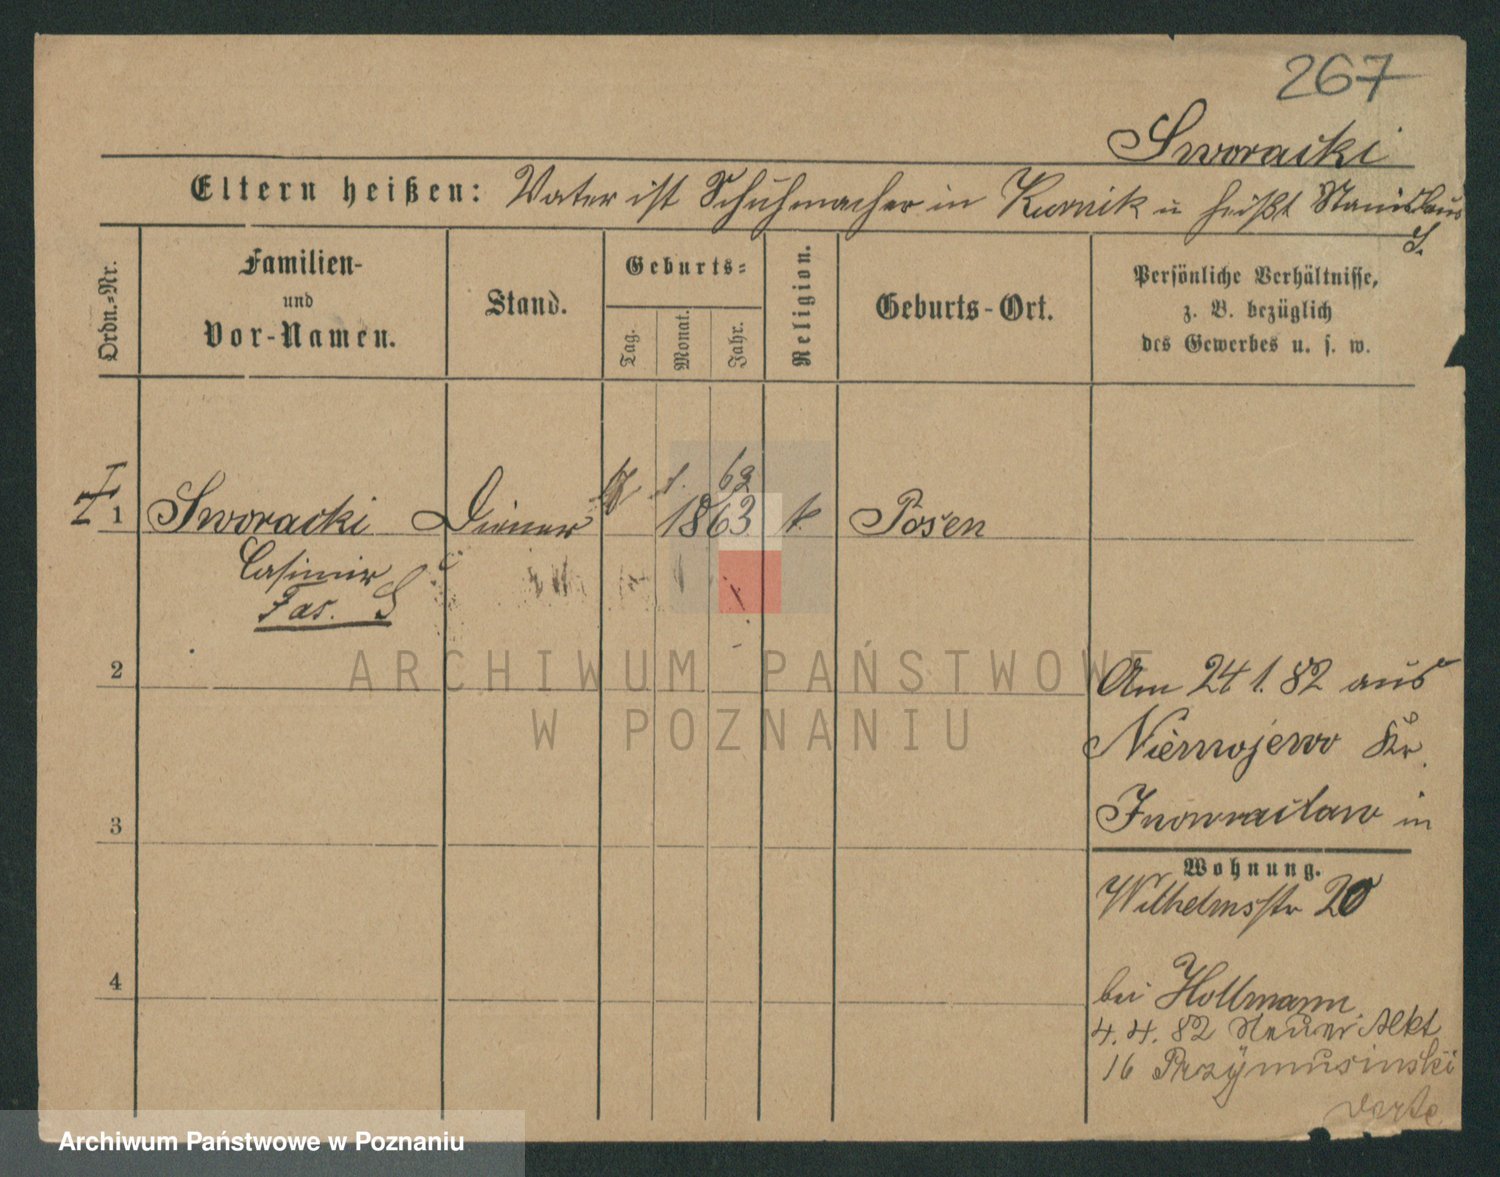 267
Sworacki
Eltern heißen: Vater ist Schuhmacher in Kurnik u heißt Stanislaus
S.
Ordn.-Nr.
Familien-
und
Vor-Namen.
Stand.
Geburts-
Tag.
Monat.
Jahr.
Religion.
Geburts-Ort.
Persönliche Verhältnisse,
z. B. bezüglich
des Gewerbes u. s. w.
62
1 Sworacki Diener 1863 k. Posen
Casimir
2
Am 24 1. 82 aus
Niemojewo Kr.
Inowraclaw in
3
Wohnung.
Wilhelmsstr 20
4
bei Hollmann.
4. 4. 82 Neuer Mkt
16 Przymusinski
verte
ARCHIWUM PAŃSTWOWE
W POZNANIU
Archiwum Państwowe w Poznaniu